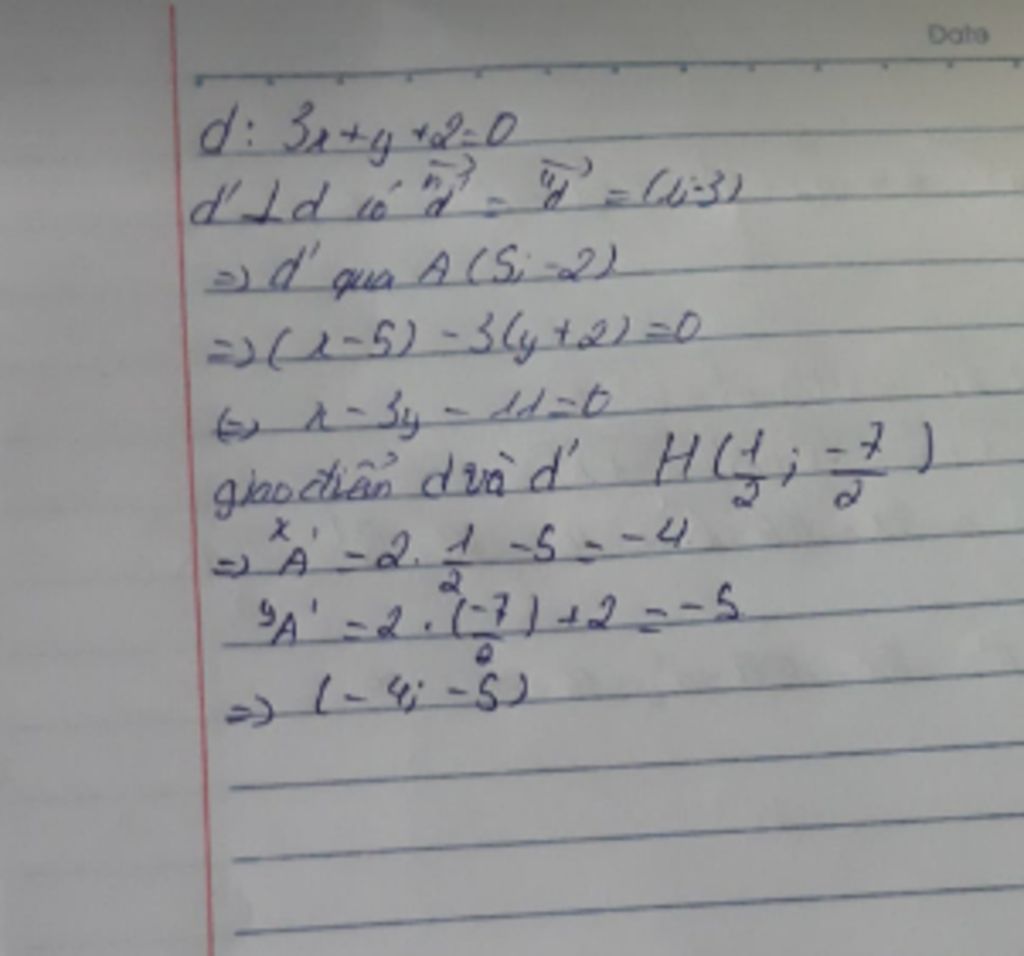 Date
d: 3x+y+2=0
d' ⊥ d có n⃗d' = u⃗d = (1;-3)
=> d' qua A(5;-2)
=> (x-5) -3(y+2)=0
<=> x-3y-11=0
giao điểm d và d' H(1/2; -7/2)
=> xA' = 2. 1/2 -5 = -4
yA' = 2. (-7/2) +2 = -5
=> (-4; -5)